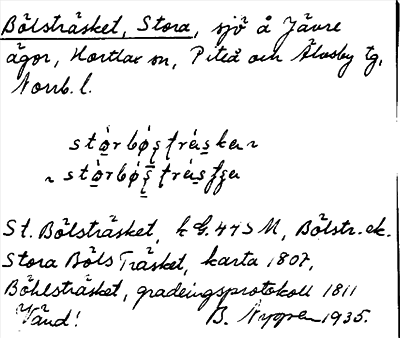 Bölsträsket, Stora, sjö å Jävre
ägor, Hortlax sn, Piteå och Älvsby tg,
Norrb. l.
St. Bölsträsket, k G. 47 S M, Bölstr. ek.
Stora Böls Träsket, karta 1807,
Böhlsträsket, gradeingsprotokoll 1811
Vänd! B. Nygren 1935.